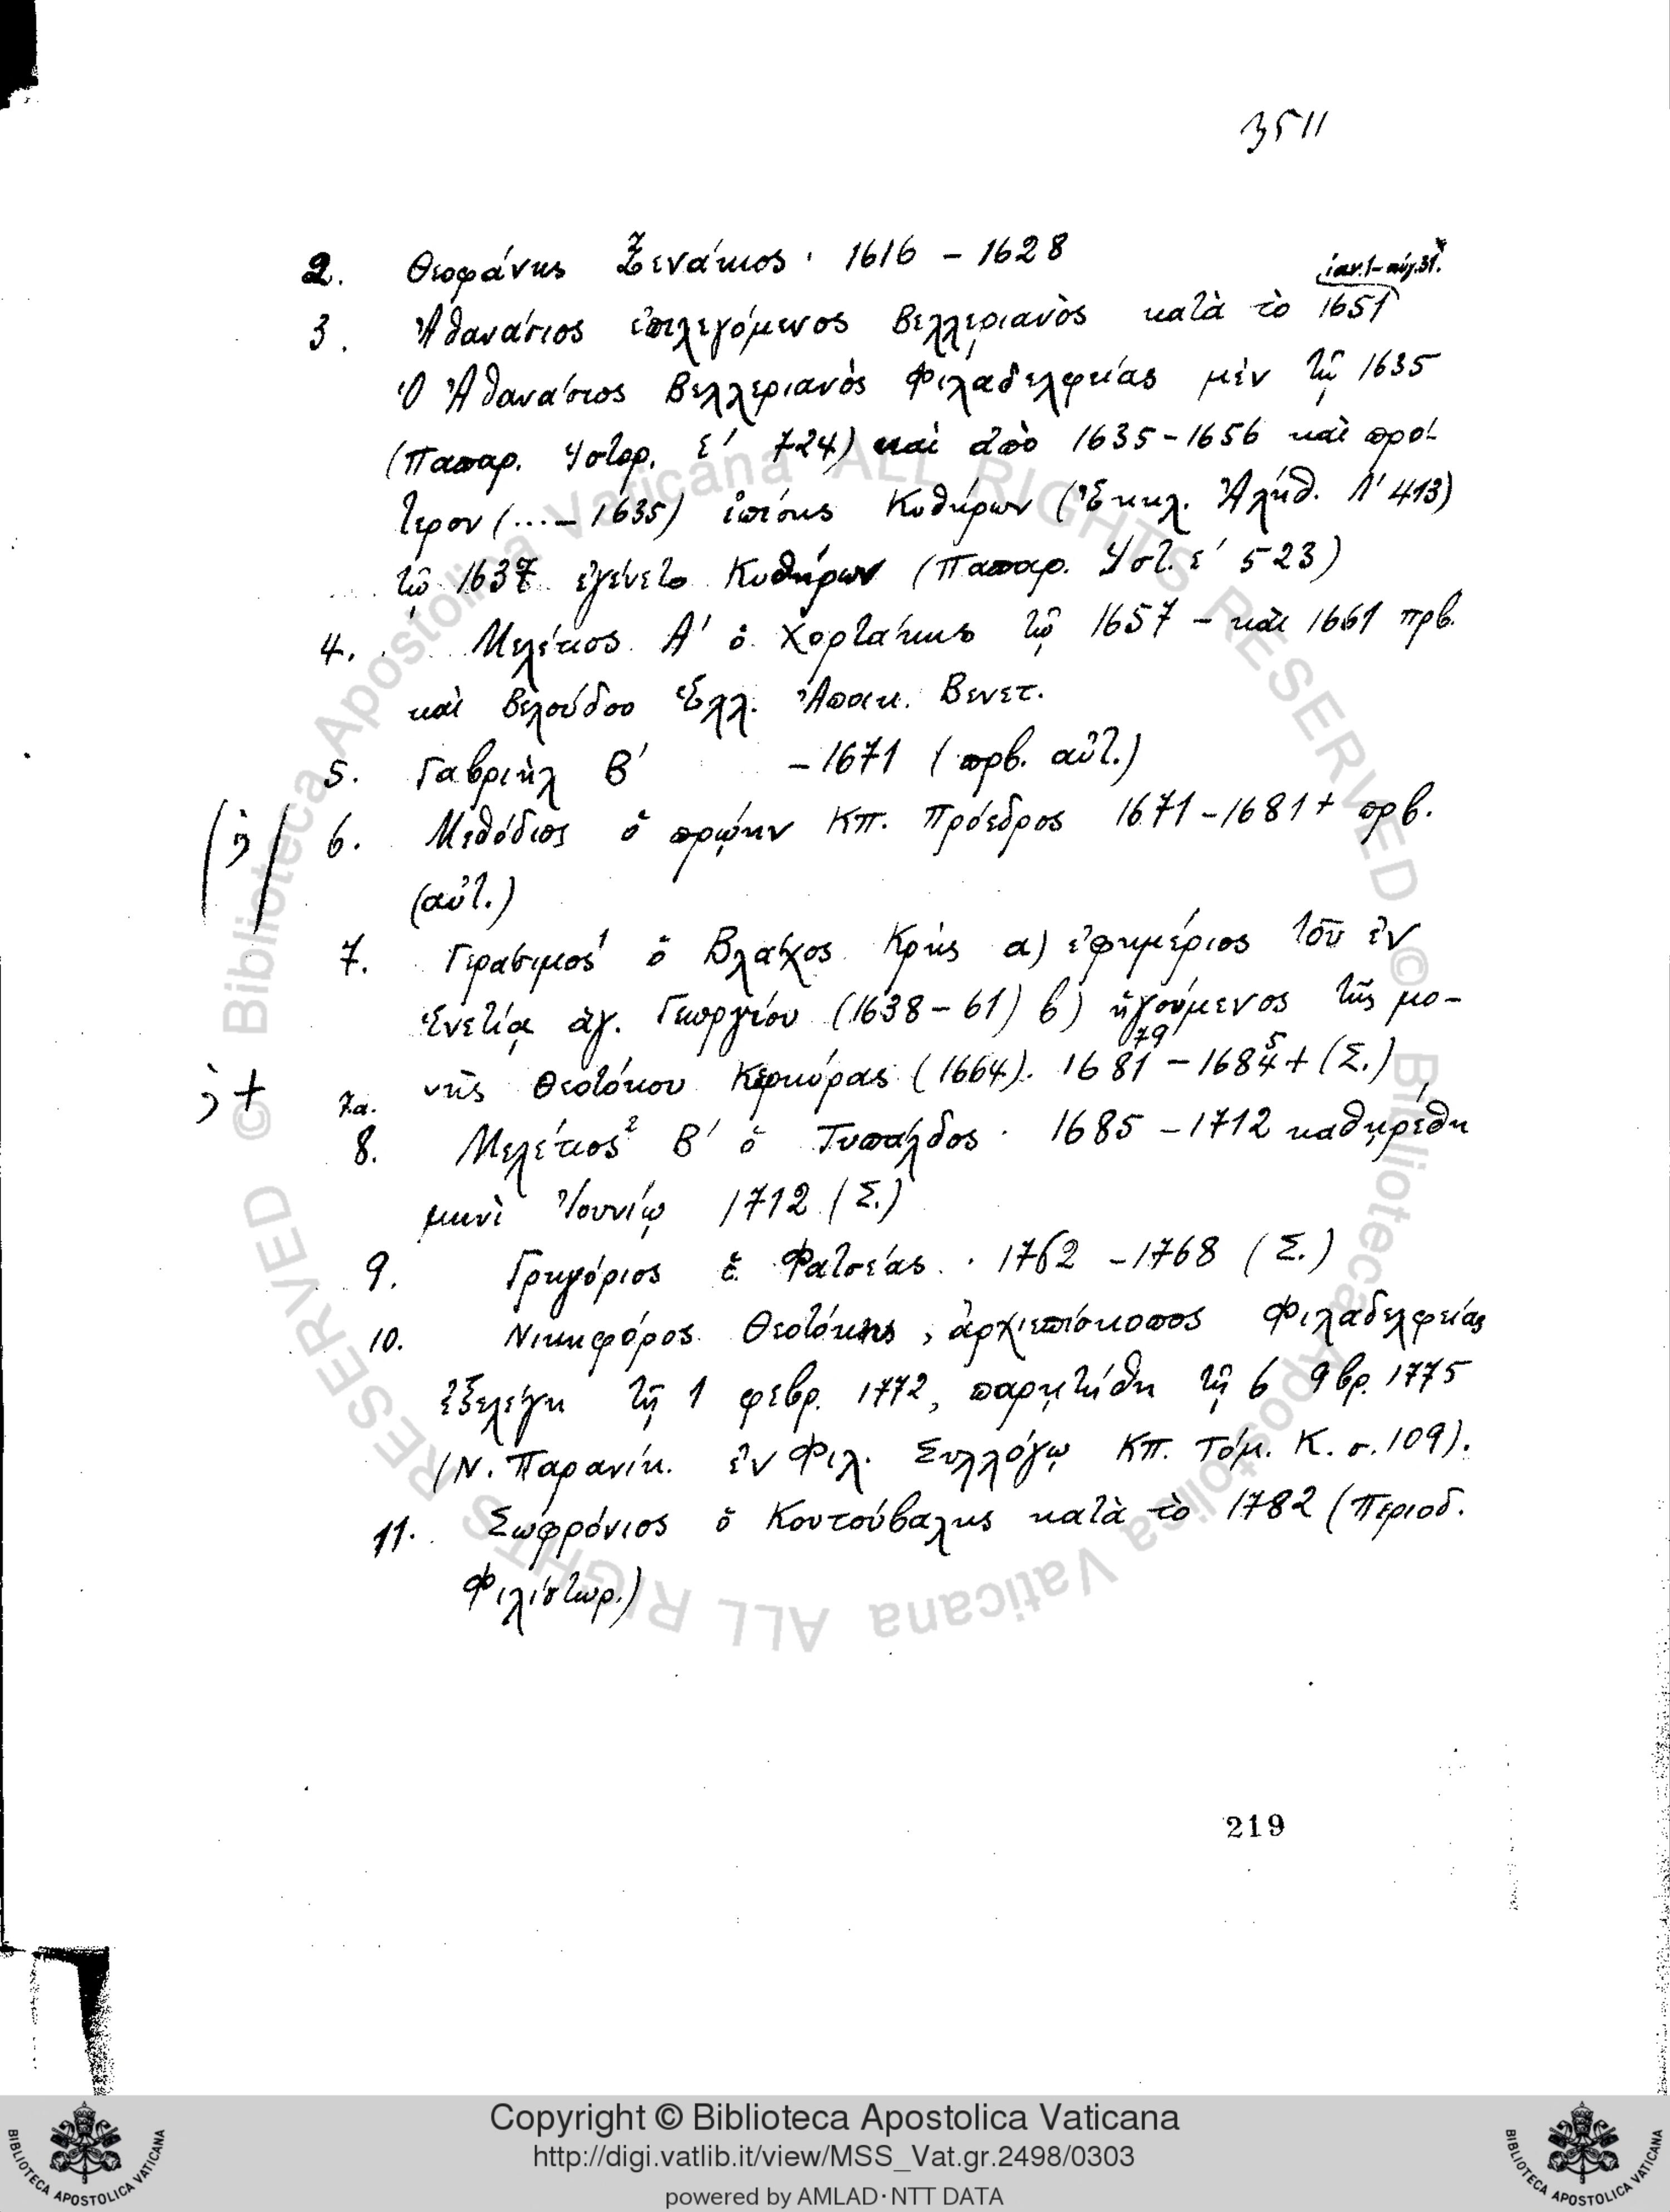 3511
2. Θεοφάνης Ξενάκιος · 1616 – 1628
ἰαν. 1 – αὐγ. 31.
3. Ἀθανάσιος ἐπιλεγόμενος Βελλεριανὸς κατὰ τὸ 1651
Ὁ Ἀθανάσιος Βελλεριανὸς Φιλαδελφείας μὲν τῷ 1635
(Παπαρ. Ὑστορ. ε´ 724) καὶ ἀπὸ 1635–1656 καὶ πρό-
τερον (... – 1635) ἐπίσης Κυθήρων (Ἐκκλ. Ἀλήθ. Λ' 413)
τῷ 1637 ἐγένετο Κυθήρων (Παπαρ. Ὑστ. ε´ 523)
4. Μελέτιος Α' ὁ Χορτάκης τῷ 1657 – καὶ 1661 πρβ.
καὶ Βελούδου Ἑλλ. Ἀποικ. Βενετ.
5. Γαβριὴλ Β' – 1671 (πρβ. αὐτ.)
(;) 6. Μεθόδιος ὁ πρώην Κπ. Πρόεδρος 1671–1681+ πρβ.
(αὐτ.)
7. Γεράσιμος¹ ὁ Βλάχος Κρὴς α) ἐφημέριος τοῦ ἐν
Ἑνετίᾳ ἁγ. Γεωργίου (1638–61) β) ἡγούμενος τῆς μο-
79 5
νῆς Θεοτόκου Κερκύρας (1664). 1681 – 1684 + (Σ.)
; + 7.α.
8. Μελέτιος² Β' ὁ Τυπάλδος · 1685 – 1712 καθῃρέθη
μηνὶ Ἰουνίῳ 1712 (Σ.)
9. Γρηγόριος ὁ Φατσέας · 1762 – 1768 (Σ.)
10. Νικηφόρος Θεοτόκης, ἀρχιεπίσκοπος Φιλαδελφείας
ἐξελέγη τῇ 1 φεβρ. 1772, παρῃτήθη τῇ 6 9βρ. 1775
(Ν. Παρανίκ. ἐν Φιλ. Συλλόγῳ Κπ. Τόμ. Κ. σ. 109).
11. Σωφρόνιος ὁ Κουτούβαλης κατὰ τὸ 1782 (Περιοδ.
Φιλίστωρ.)
219
© Biblioteca Apostolica Vaticana ALL RIGHTS RESERVED
© Biblioteca Apostolica Vaticana ALL RIGHTS RESERVED
BIBLIOTECA APOSTOLICA VATICANA
Copyright © Biblioteca Apostolica Vaticana
http://digi.vatlib.it/view/MSS_Vat.gr.2498/0303
powered by AMLAD·NTT DATA
BIBLIOTECA APOSTOLICA VATICANA